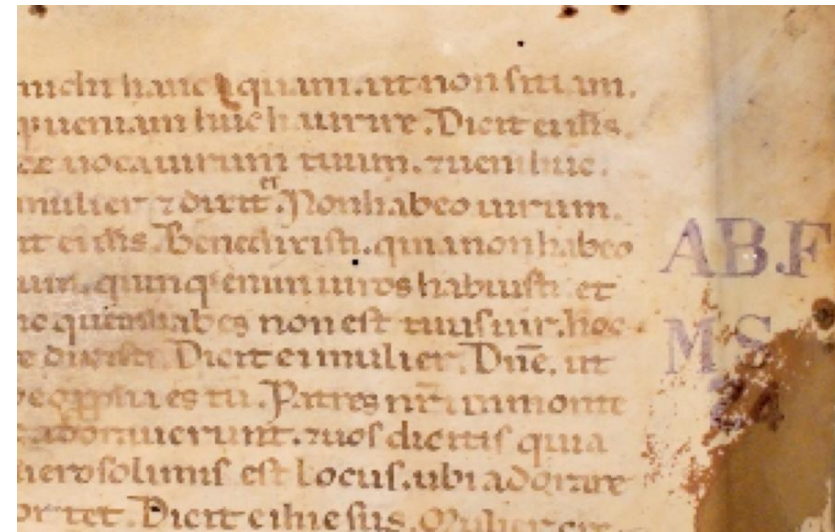 michi hanc aquam. ut non sitiam.
ueniam huc haurire. Dicit ei ihs.
uoca uirum tuum. ⁊ ueni huc.
mulier ⁊ dixit et. Non habeo uirum.
it ei ihs. Bene dixisti. quia non habeo
um. quinq; enim uiros habuisti. et
quem habes non est tuus uir. hoc
dixisti. Dicit ei mulier. Dnē. ut
es tu. Patres nr̄i in monte
adorauerunt. ⁊ uos dicitis quia
hierosolimis est locus. ubi adorare
tet. Dicit ei hiesus. Mulier
AB.F
MS
24